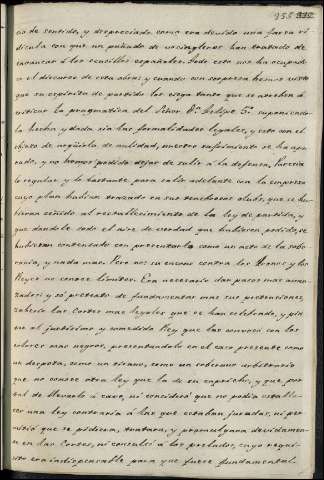 358
cio de sentido, y despreciado como era devido una farsa ri-
dicula con que un puñado de vocingleros han tratado de
encaucar à los sencillos españoles. Todo esto nos ha ocupado
en el discurso de esta obra; y cuando con sorpresa hemos visto
que su espiritu de partido los ciega tanto que se atreben á
criticar la pragmatica del Señor Dn. Felipe 5º suponiendo
la hecha y dada sin las formalidades legales, y esto con el
objeto de argüirla de nulidad, nuestro sufrimiento se ha apu-
rado, y no hemos podido dejar de salir á la defensa. Parecia
lo regular y lo bastante para salir adelante con la empresa
cuyo plan habian trazado en sus tenebrosos clubs, que se hu-
bieran ceñido al restablecimiento de la ley de partida, y
que dandole todo el aire de verdad que hubieren podido, se
hubieran contentado con presentarla como un acto de la sobe-
rania, y nada mas. Pero no: su encono contra los Tronos y los
Reyes no conoce limites. Era necesario dar pasos mas avan-
zados; y só pretesto de fundamentar mas sus pretensiones,
zaherir las Cortes mas legales que se han celebrado, y pin-
tar al justisimo y comedido Rey que las convocó con los
colores mas negros, presentandolo en el caso presente como
un despota, como un tirano, como un soberano arbitrario
que no conoce otra ley que la de su capricho, y que por
tal de llevarlo á cavo, ni consideró que no podia estable-
cer una ley contraria á las que estaban juradas, ni per-
mitió que se pidiera, tratara, y promulgara decididamen-
te en las Cortes, ni consultó á los prelados, cuyo requi-
sito era indispensable para que fuese fundamental.